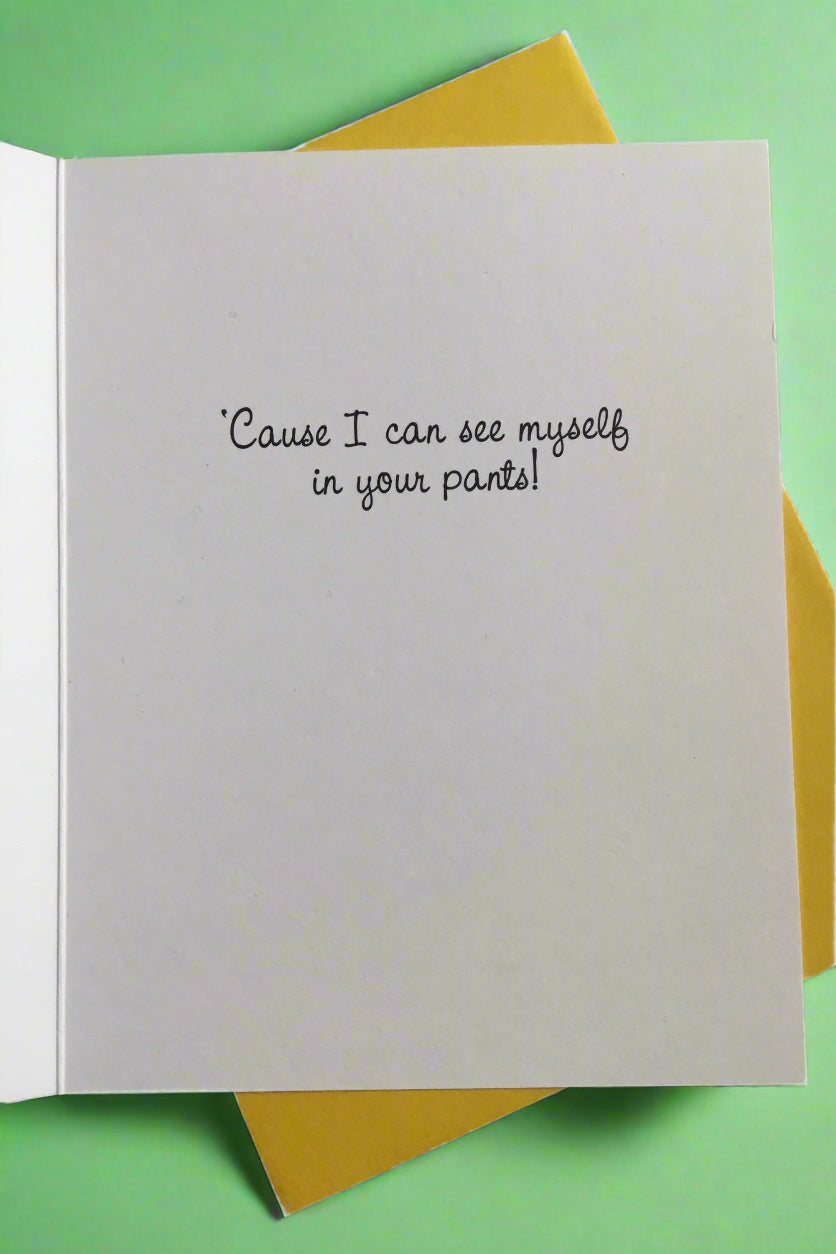 'Cause I can see myself
in your pants!